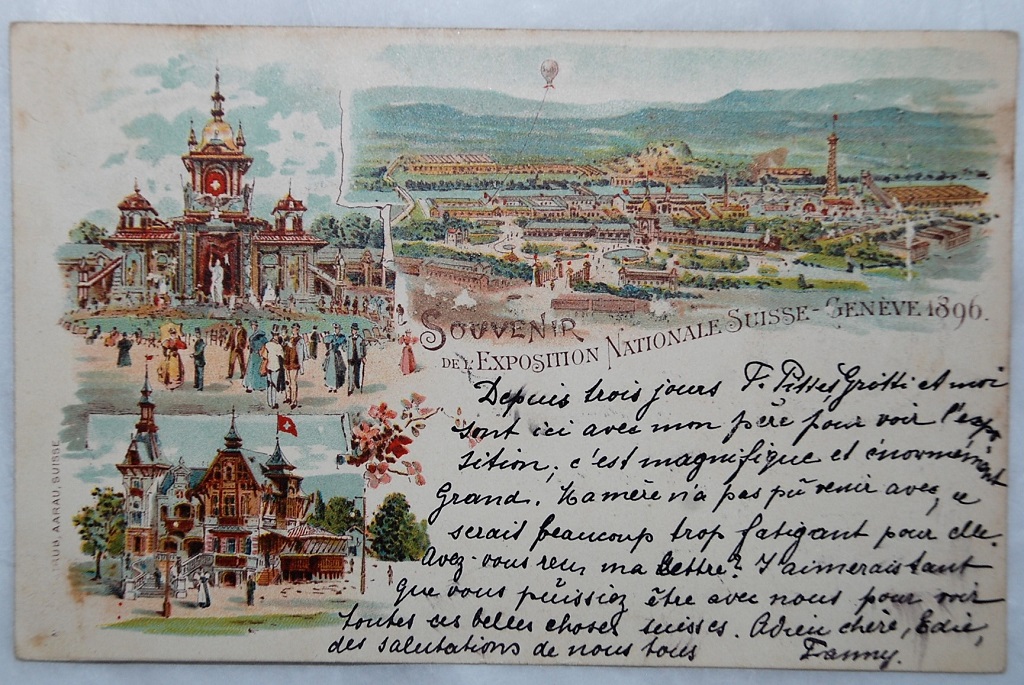 SOUVENIR
DE L'EXPOSITION NATIONALE SUISSE - GENÈVE 1896.
Depuis trois jours F. Grotti et moi
sont ici avec mon père pour voir l'expo
sition, c'est magnifique et énormément
Grand. Ma mère n'a pas pû venir avec, ce
serait beaucoup trop fatigant pour elle.
Avez-vous reçu ma lettre? J'aimerais tant
que vous puissiez être avec nous pour voir
toutes ces belles choses suisses. Adieu chère, Edie,
des salutations de nous tous
Fanny.
AARAU, SUISSE